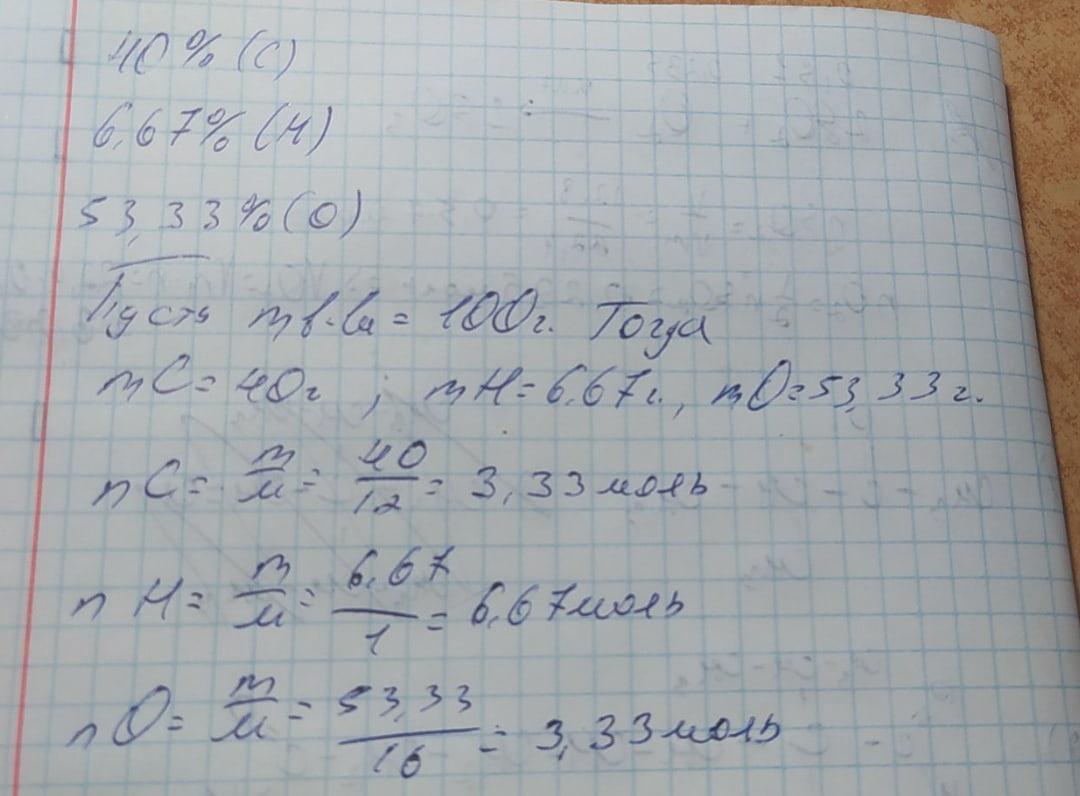 40% (C)
6,67% (H)
53,33% (O)
Пусть m в-ва = 100г. Тогда
mC = 40г ; mH = 6,67г., mO = 53,33г.
nC = m/M = 40/12 = 3,33 моль
nH = m/M = 6,67/1 = 6,67 моль
nO = m/M = 53,33/16 = 3,33 моль